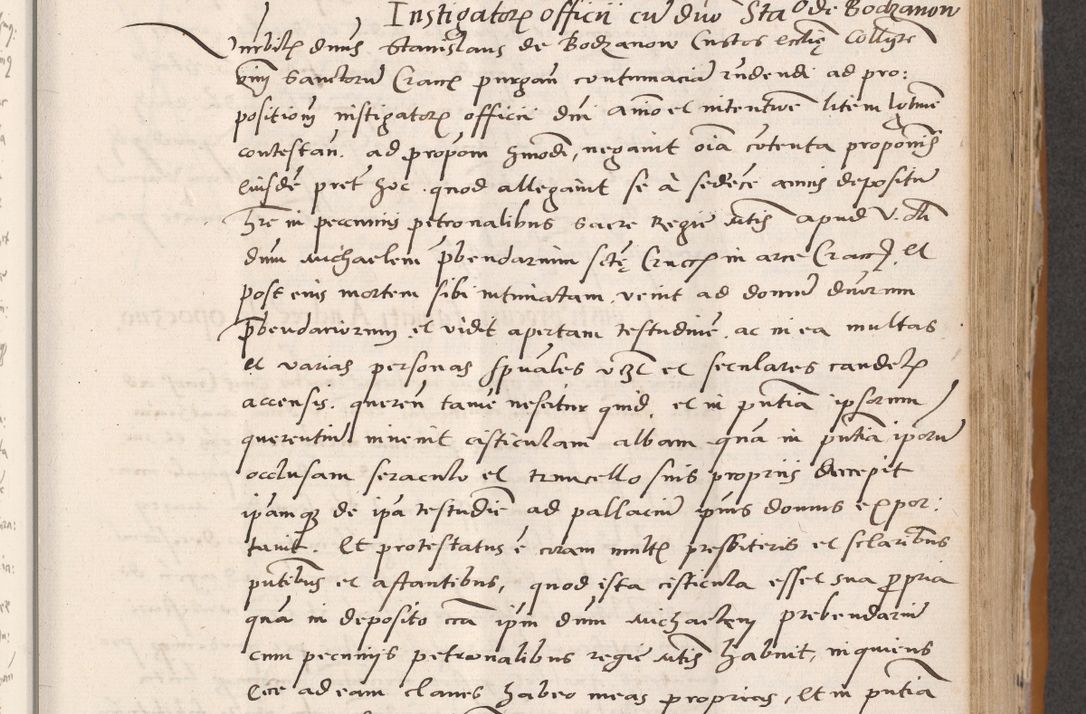 Instigatoris officii cu duo Sta O de Bodzanow
Vnrbilis dnus Stanislaus de Bodzanow Custos ecclie
omni Sanctoru Craco purgan contumacia rndendi ad pro:
positioni instigatoris officii dni aimo el intentione litem
contestan. ad propom hmodi, negauit oia cotenta proponis
eiusde pret hoc. quod allegauit se à sedece annis depositu
hre in peccuniis petronalibus Sacre Regie Mtis apud V. olli
dnm Michaelem pbendarium scte Crucis in arce Craco, et
post eius mortem sibi intimatam, venit ad domu duorum
pbendariorum, et vidit apertam testudine, ac in ea multas
et varias personas spuales et seculares candelis
accensis. queren tame nescitur quid, et in pntia ipsorum
querentiu inuenit cisticulam albam qua in pntia iporu
occlusam seraculo el truncello suis propriis decrepit
ipamque de ipa testudie ad pallaciu ipius domus expor:
tauit. Et protestatus e coram multis presbiteris et sclaribus
pntibus et astantibus, quod ista cisticula essel sua propria
qua in deposito cca ipm dnm Michaelem prebendariu
cum pecuniis petronalibus regie Mtis habuit, inquiens
Ecce ad eam claues habeo meas proprias, Et in pntia